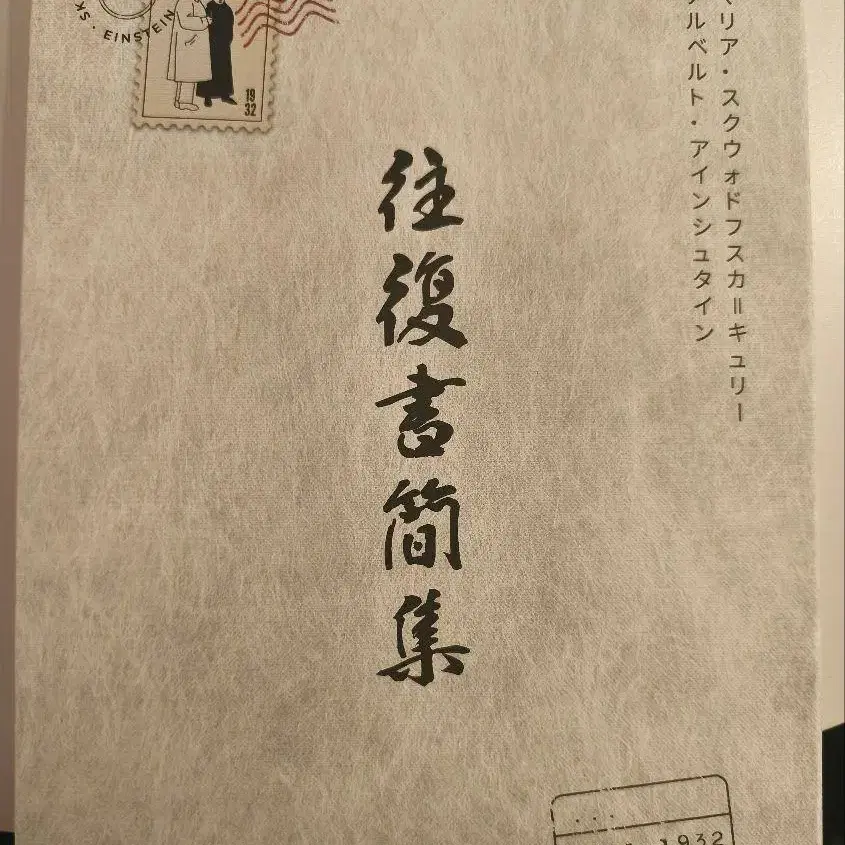 リア・スクウォドフスカ=キュリー
ルベルト・アインシュタイン
往復書簡集
SK · EINSTEIN
19
32
1932